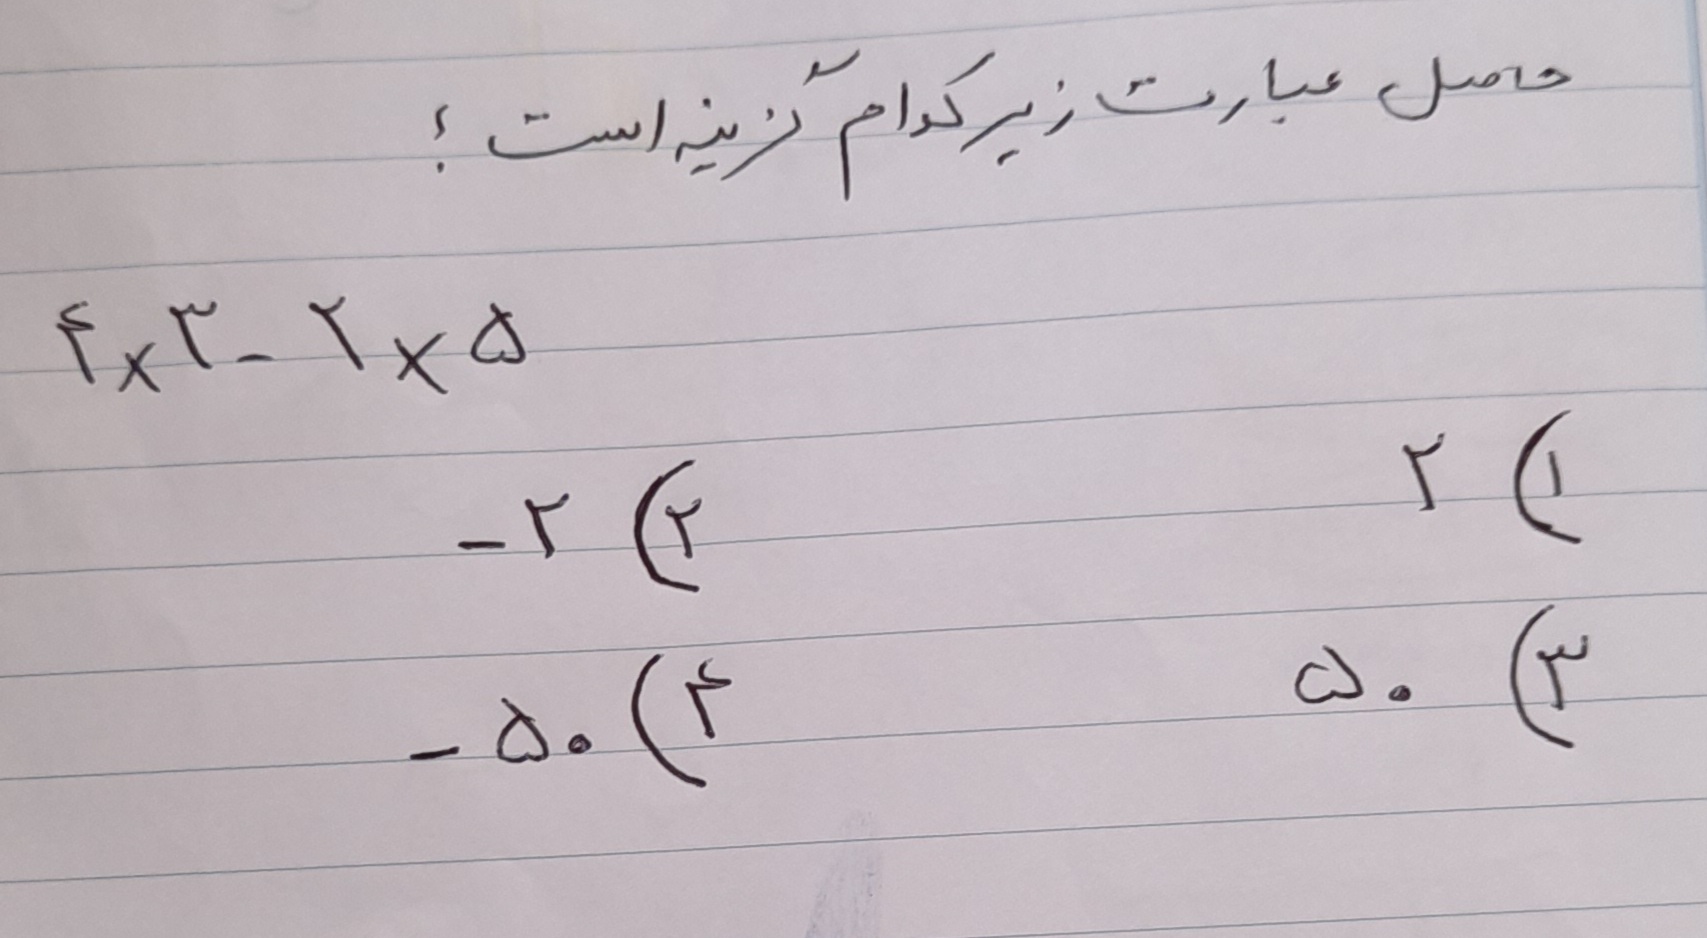 حاصل عبارت زیر کدام گزینه است ؟
۴×۳-۲×۵
۱) ۲ ۲) -۲
۳) ۵۰ ۴) -۵۰